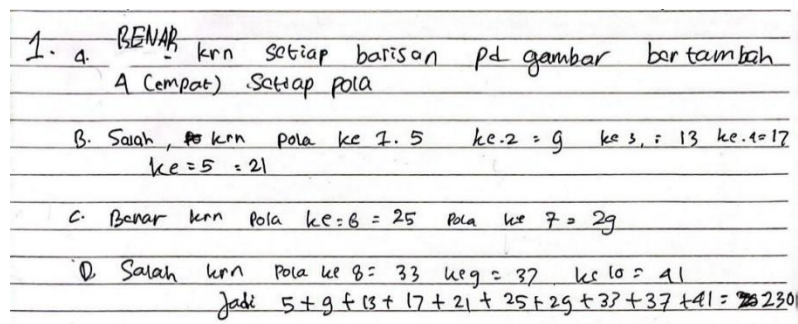 1. a. BENAR krn setiap barisan pd gambar bertambah
4 (empat) setiap pola
B. Salah, krn pola ke 1. 5 ke.2 = 9 ke 3, = 13 ke.4=17
ke=5 = 21
C. Benar krn Pola ke=6 = 25 Pola ke 7 = 29
D. Salah krn Pola ke 8 = 33 ke 9 = 37 ke 10 = 41
Jadi 5+9+13+17+21+25+29+33+37+41 = 230